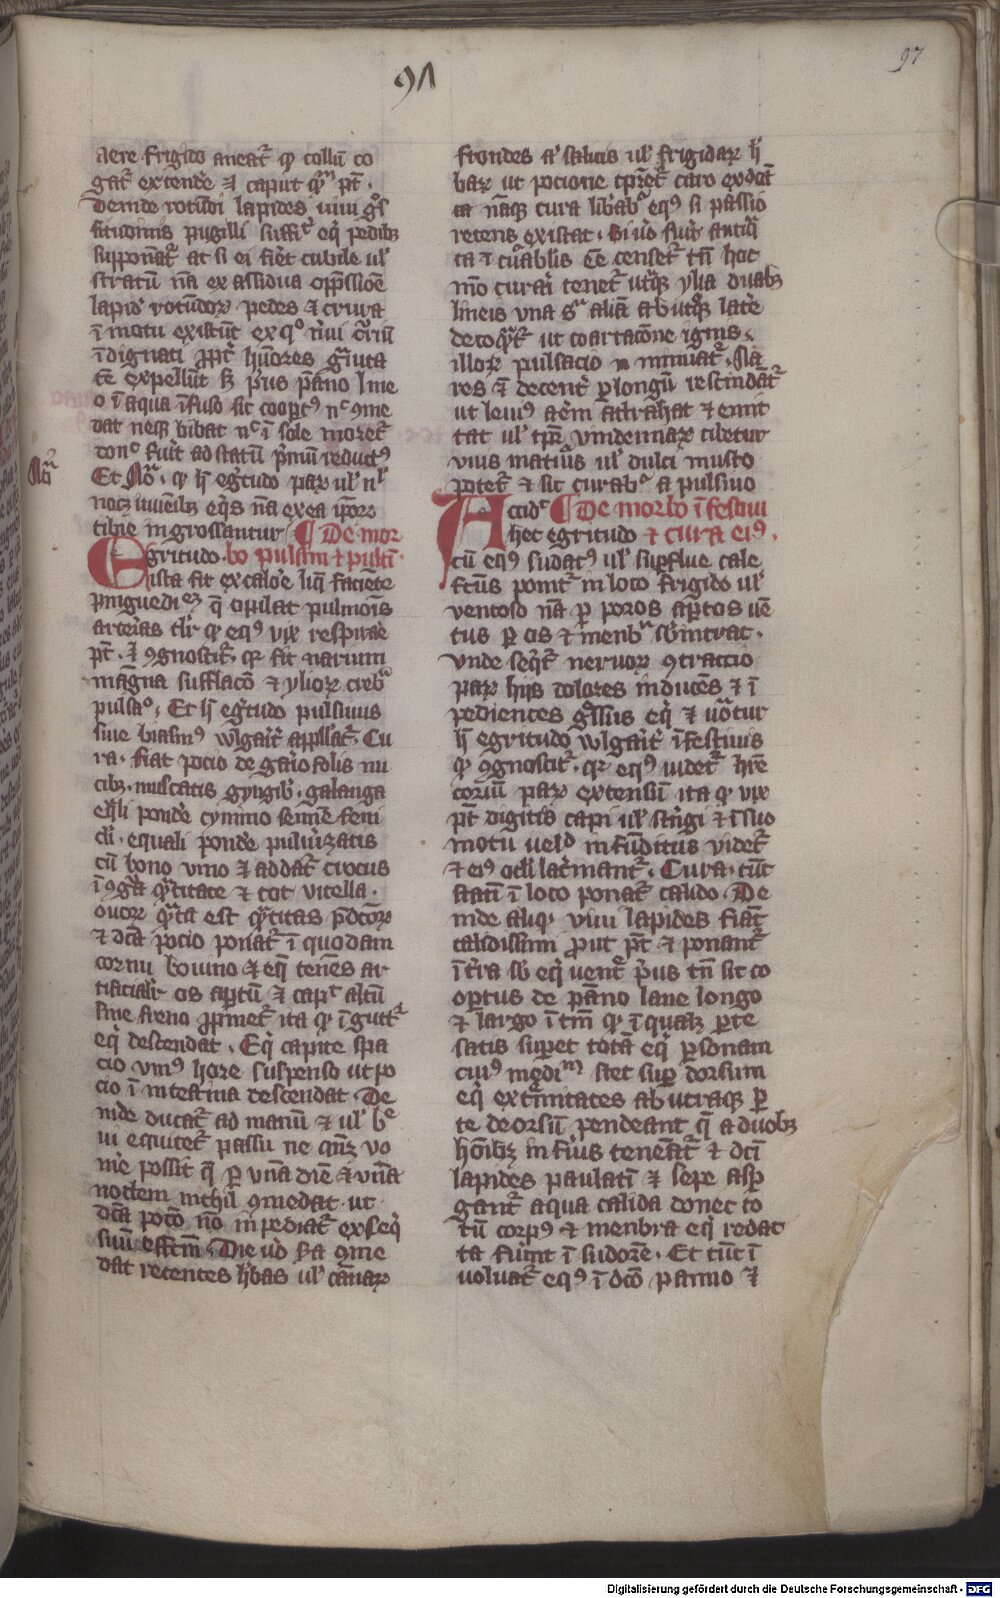 97
97
aere frigido aneatͬ ꝙ collū co
gatͬ extendeꝰe ⁊ caput qͣm pt̄.
Deinde rotūdi lapides uiui gͦſ
ſitudinis pugilli ſuffic̄ eqͥ pedibꝫ
ſupponātͬ at ſi ei fiet cubile ulˀ
ſtratū nā ex aſſidua op̄ſſiōe
lapidꝭ rotūdoꝝ pedes ⁊ crura
ī motu exiſtūt ex qͦ nͥui cͥriū
īdignati ꝓpͭ hūores gͣuita
te expellūt ſꝫ pͥus pāno line
o ī aqua īfuſo ſit cooꝑtꝰ nͨ ꝯme
dat neqꝫ bibat nͨ ī ſole moretͬ
donͨ fuīt ad ſtatū pͥmū reductꝰ
Noͣ
Et Noͣ. ꝙ h̄ egͥtudo paꝝ ulˀ nlˀ
nocꝫ iuuēibꝫ eqͥs nā ex ea ip̄oꝝ
tibie ingroſſantur ¶ De mor
Egritudo. bo pulſiui ⁊ pulſi
iſta fit ex caloꝰe liq̄ faciēte
pīguediē q̄ opilat pulmoīs
arteias tlr̄ ꝙ eqꝰ vix reſpirāe
pt̄. ⁊ ꝯgnoſcitͬ. qꝛ fit narium
magna ſufflacō ⁊ ylioꝝ crebͣ
pulſaᵒ. Et h̄ egͥtudo pulſiuus
ſiue biaſinꝰ wlgaiͬt appllatͬ. Cu
ra. fiat pocio de gaͥofolis nu
cibꝫ. muſcatis gyngib̄. galanga
eqͣli pondēe cymino ſemiē feni
cͥli. equali pondēe puluiꝫatis
cū bono vino ⁊ addatͬ crocus
ī ꝯgͣa qͣtitate ⁊ tot vitella.
ouoꝝ qͣta eſt qͣtitas p̄dc̄oꝝ
⁊ dc̄a pocio ponatͬ ī quodam
cornu bouino ⁊ eqͥ tenēs ar
tificialr̄ os aꝑtū ⁊ capͭ altū
ſine freno ꝓpinetͬ ita ꝙ ī guttͬ
eqͥ deſcendat. Eqͥ capite ſpa
cio vniꝰ hore ſuſpenſo ut po
cio ī inteſtina deſcendat. De
inde ducatͬ ad manū ⁊ ulˀ bͤ
ui equitetͬ paſſu ne qͣꝫ vo
mēe poſſit q̄ ꝑ vnā diē ⁊ vnā
noctem nichil ꝯmedat. ut
dc̄a pocō nō inpediatͬ exſeqͥ
ſuū effc̄m. Die uͦo ſcͣa ꝯme
dat recentes hͥbas ulˀ cānaꝝ
frondes aͭ ſalicis ulˀ frigidaꝝ h̄
baꝝ ut pocione tꝑetͬ caro ex dcͣ
ta nāqꝫ cura libabͬ eqꝰ ſi paſſio
recens exiſtat. Si uͦo fuīt antiqͣ
ta ⁊ cͥuablis ēe cenſetͬ tn̄ hoc
mō curaͥ tenetͬ utͥqꝫ ylia duabꝫ
lineis vna ſͣ aliā ab utͥqꝫ latēe
decoqͣtͬ ut coartacōne ignis.
illoꝝ pulſacio minuatͬ. Na
res ēt decentͬ ꝑ longū reſcindātͬ
ut leuiꝰ aērē attrahat ⁊ emit
tat ulˀ tꝑe vindemiaꝝ cibetur
vuis matuͥs ulˀ dulci muſto
potetͬ ⁊ ſic curabͬ a pulſiuo
Accidͭ ¶ De morbo īfeſtiui
hec egritudo ⁊ cura eiꝰ.
cū eqꝰ ſudatꝰ ulˀ ſuꝑflue cale
fctūs ponitͬ in loco frigido ulˀ
ventoſo nā ꝑ poros aꝑtos uē
tus ꝑ os ⁊ menbͣ ſb̄intrat.
vnde ſeqͥtͬ neruoꝝ ꝯtraccio
paꝝ hijs dolores inducēs ⁊ ī
pediences gͥſſus eqͥ ⁊ uo̅tur
h̄ egritudo wlgaiͬt īfeſtiuus
ꝙ ꝯgnoſcitͬ. qꝛ eqꝰ uidetͬ hr̄e
coriū paꝝ extenſū ita ꝙ vix
pt̄ digitis capi ulˀ ſtͥngi ⁊ ī ſuo
motu uelᵒ infūditus videtͬ
⁊ eiꝰ ocli lacͥmantͬ. Cura. tūc
ſtatī ī loco ponatͬ calido. De
inde aliqͥ viui lapides fiāt
calidiſſimi ꝓut pt̄ ⁊ ponantͬ
ī tͬra ſb̄ eqͥ uentͬ pͥus tn̄ ſit co
opertus de pāno lane longo
⁊ largo ī tm̄ ꝙ ī qualꝫ ꝑte
ſatis ſuꝑet totā eqͥ ꝑſonam
cuiꝰ medīm ſtet ſuꝑ dorſum
eqͥ extͥmitates ab utraqꝫ ꝑ
te deorſū pendeant q̄ a duobꝫ
hoībꝫ in fͥius teneātͬ ⁊ dc̄i
lapides paulatī ⁊ ſepe aſꝑ
gantͬ aqua calida donec to
tū corpꝰ ⁊ menbra eqͥ redac
ta fuīnt ī ſudorē. Et tūc ī
voluatͬ eqꝰ ī dc̄o panno ⁊
Digitalisierung gefördert durch die Deutsche Forschungsgemeinschaft - DFG